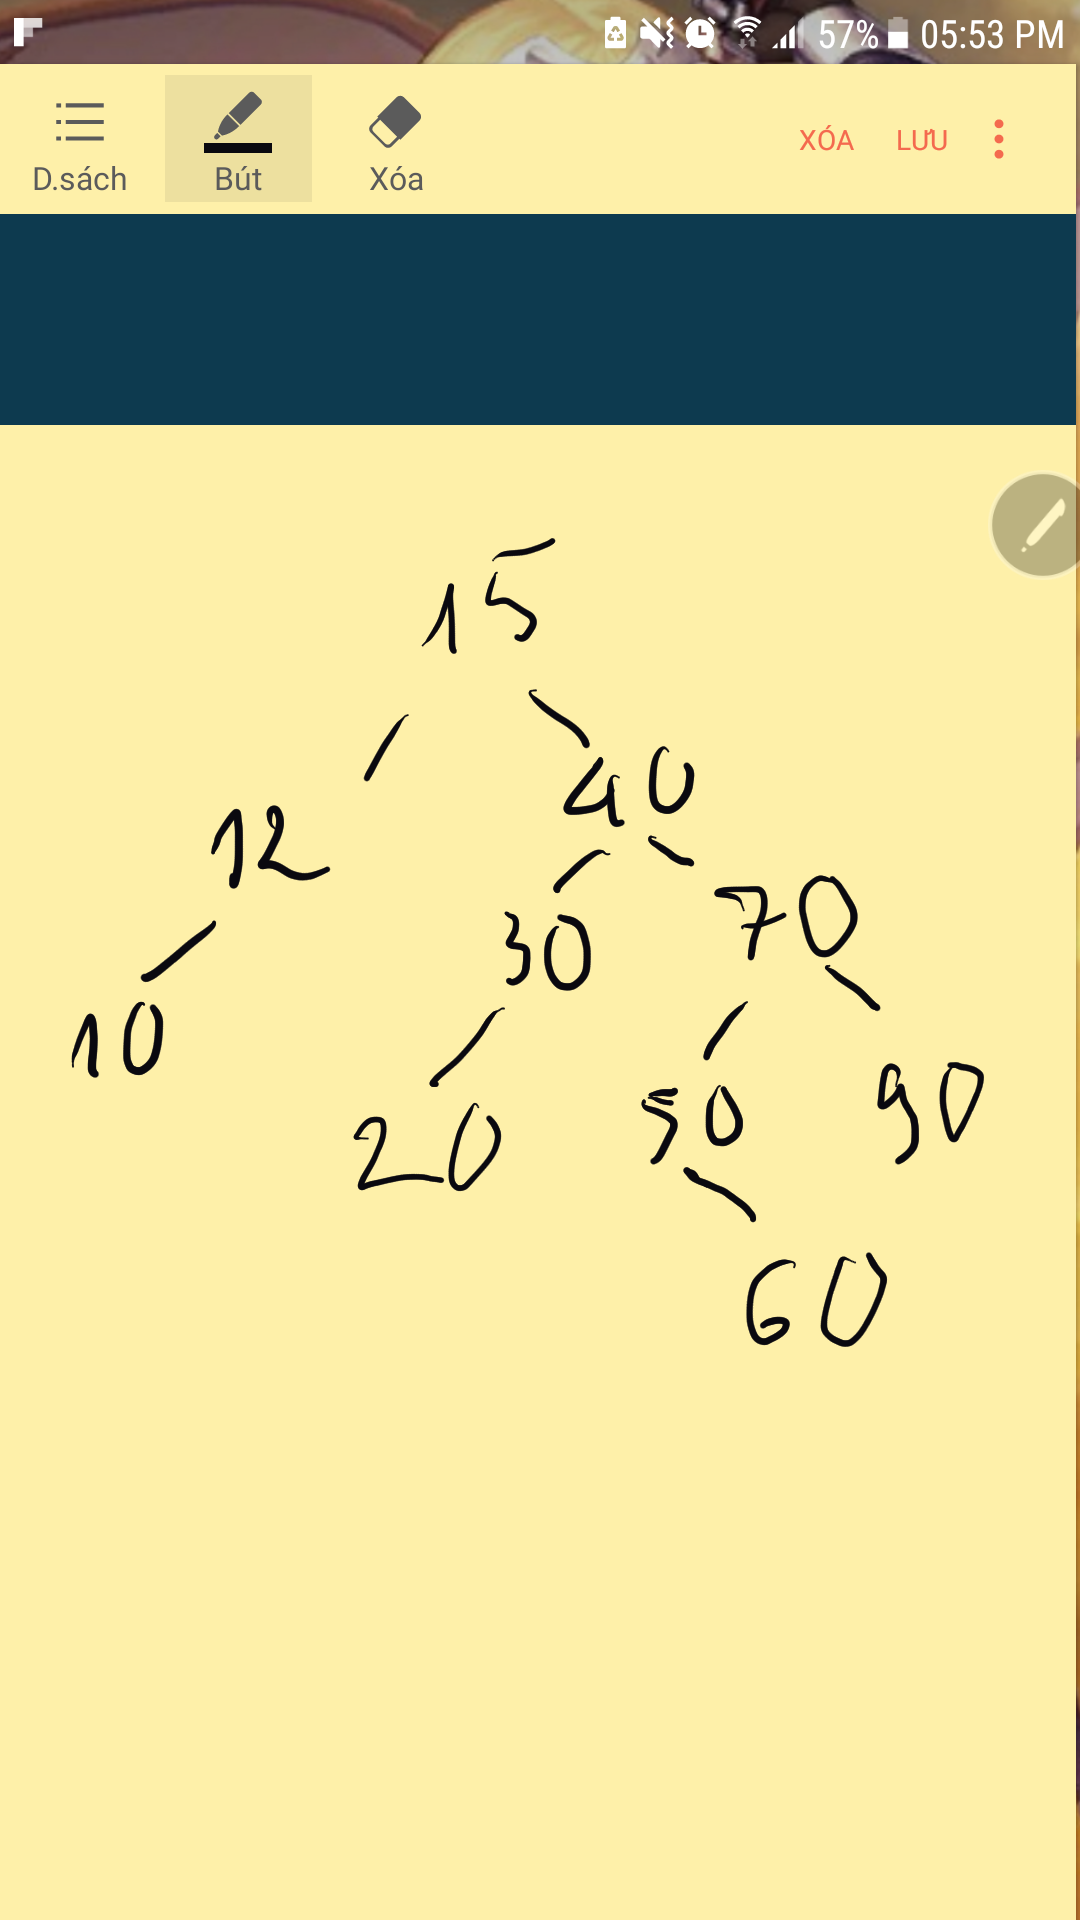 57% 05:53 PM
D.sách Bút Xóa XÓA LƯU
15
12 40
10 30 70
20 50 90
60